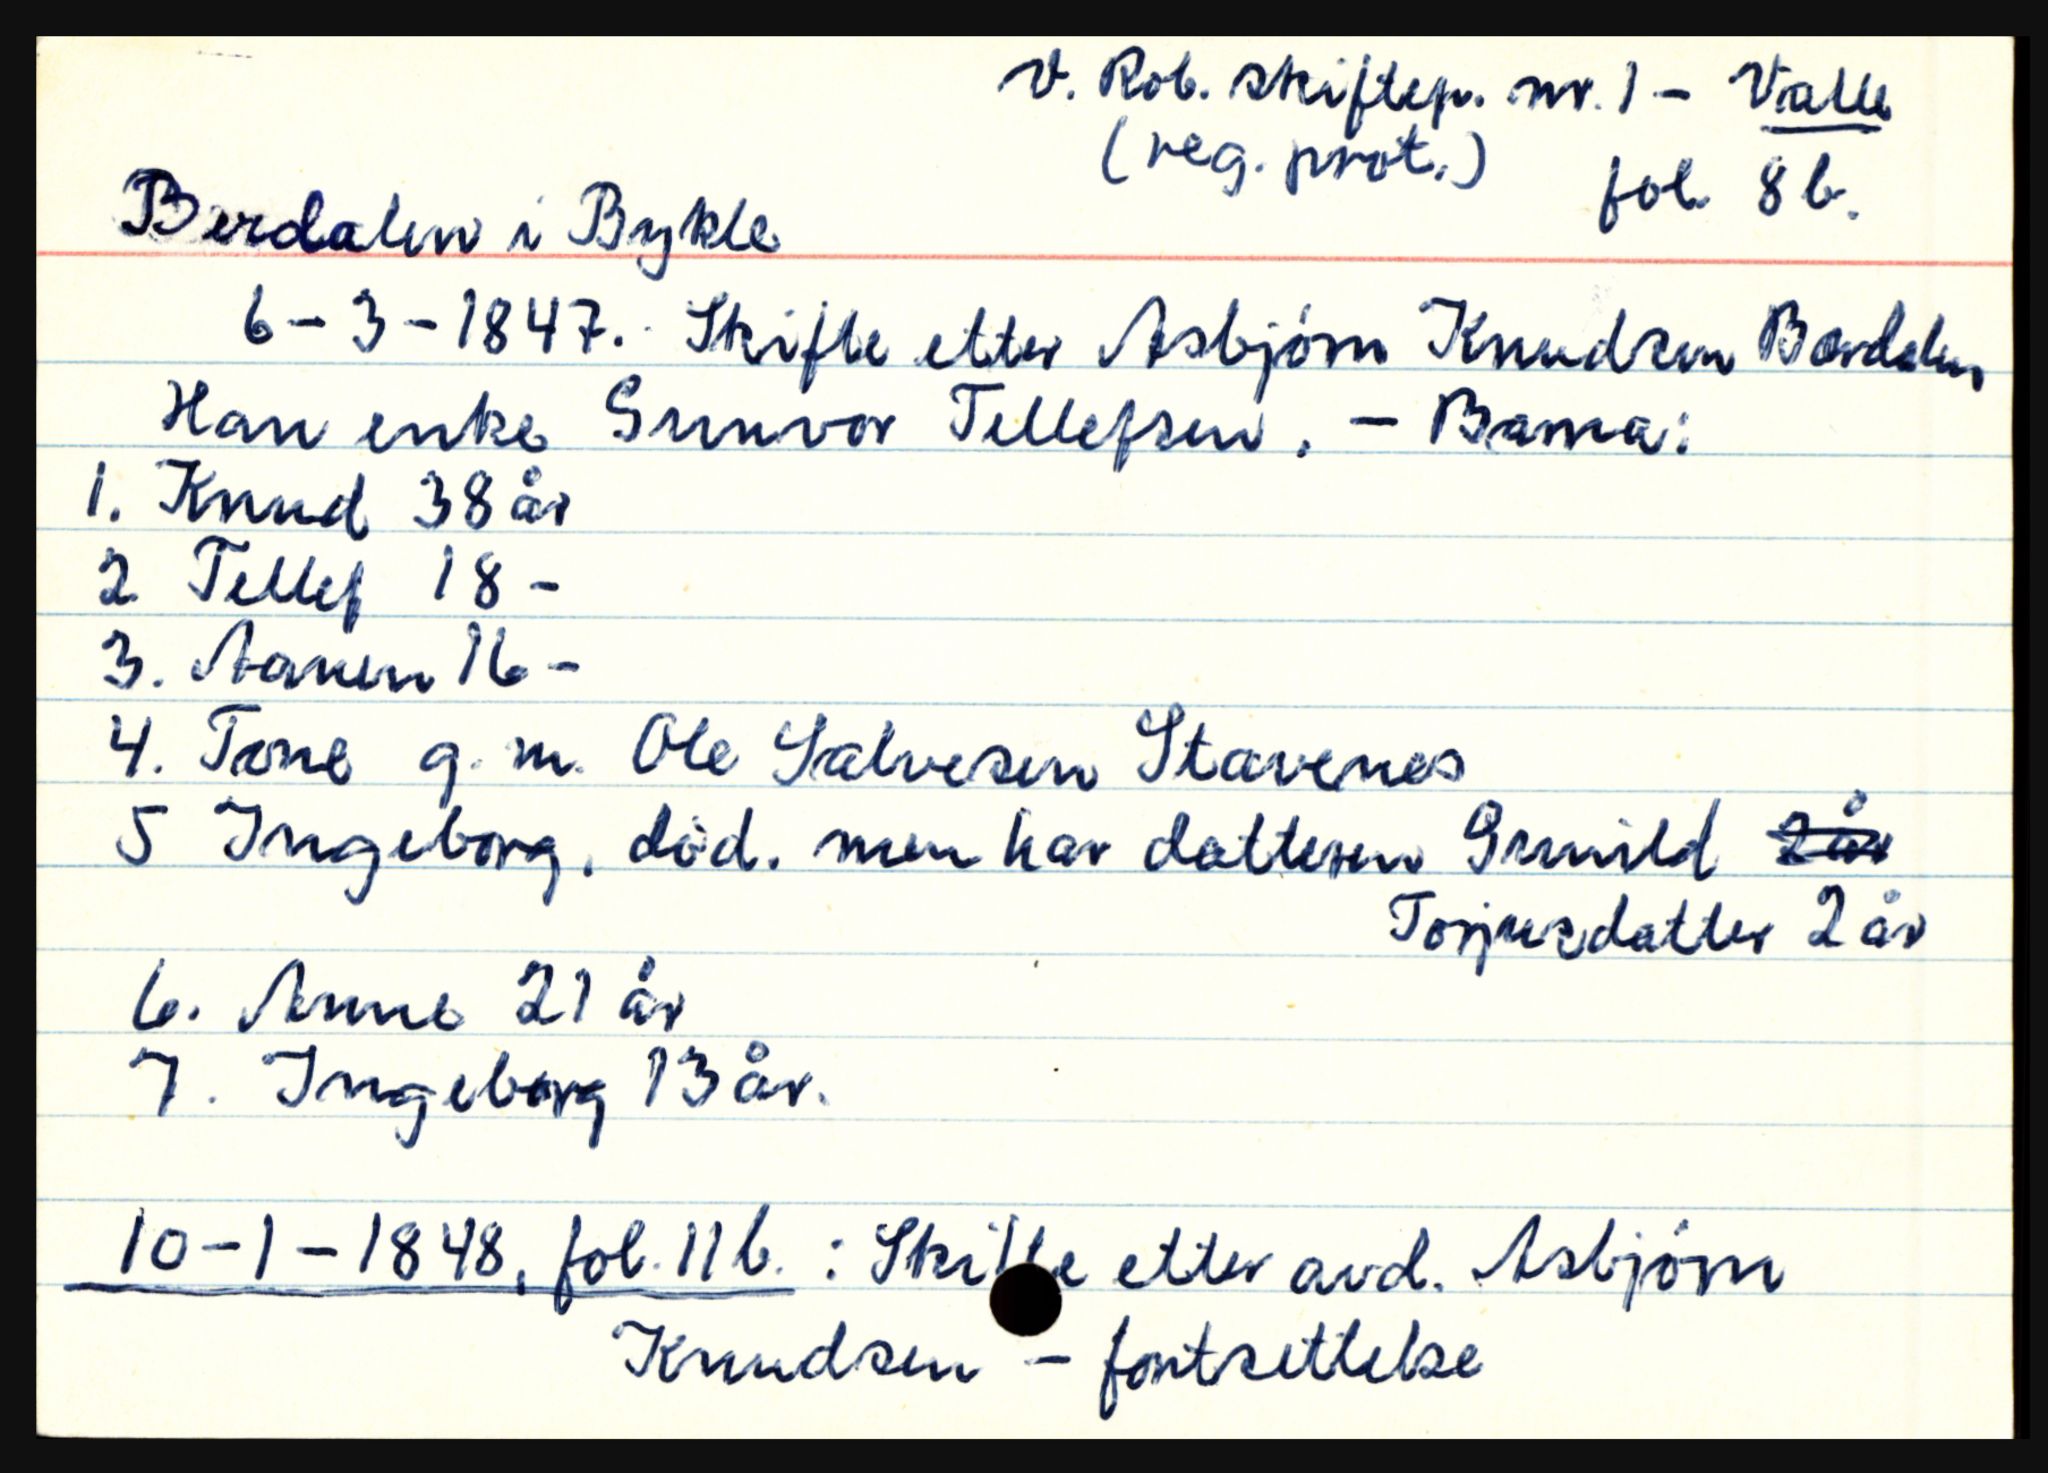 V. Rob. skiftep. nr. 1 - Valle
(reg. prot.) fol. 8b.
Berdalen i Bykle
6-3-1847. Skifte etter Asbjörn Knudsen Berdalen
Han enke Gunvor Tellefsen. - Barna:
1. Knud 38 år
2. Tellef 18 -
3. Aanen 16 -
4. Tone g. m. Ole Salvesen Stavenes
5 Ingeborg, död. men har datteren Gunild 2 år
Torjusdatter 2 år
6. Anne 21 år
7. Ingeborg 13 år.
10-1-1848, fol. 11b. : Skifte etter avd. Asbjörn
Knudsen - fortsettelse